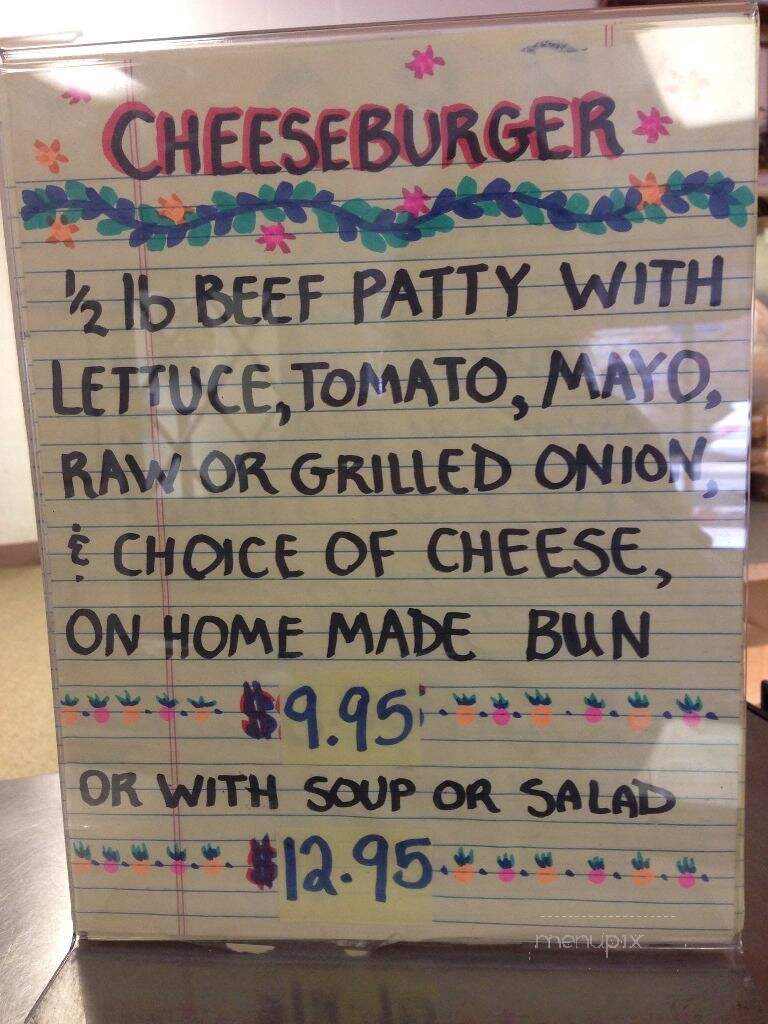 CHEESEBURGER
1/2 lb BEEF PATTY WITH
LETTUCE, TOMATO, MAYO,
RAW OR GRILLED ONION,
& CHOICE OF CHEESE,
ON HOME MADE BUN
$9.95
OR WITH SOUP OR SALAD
$12.95
menupix